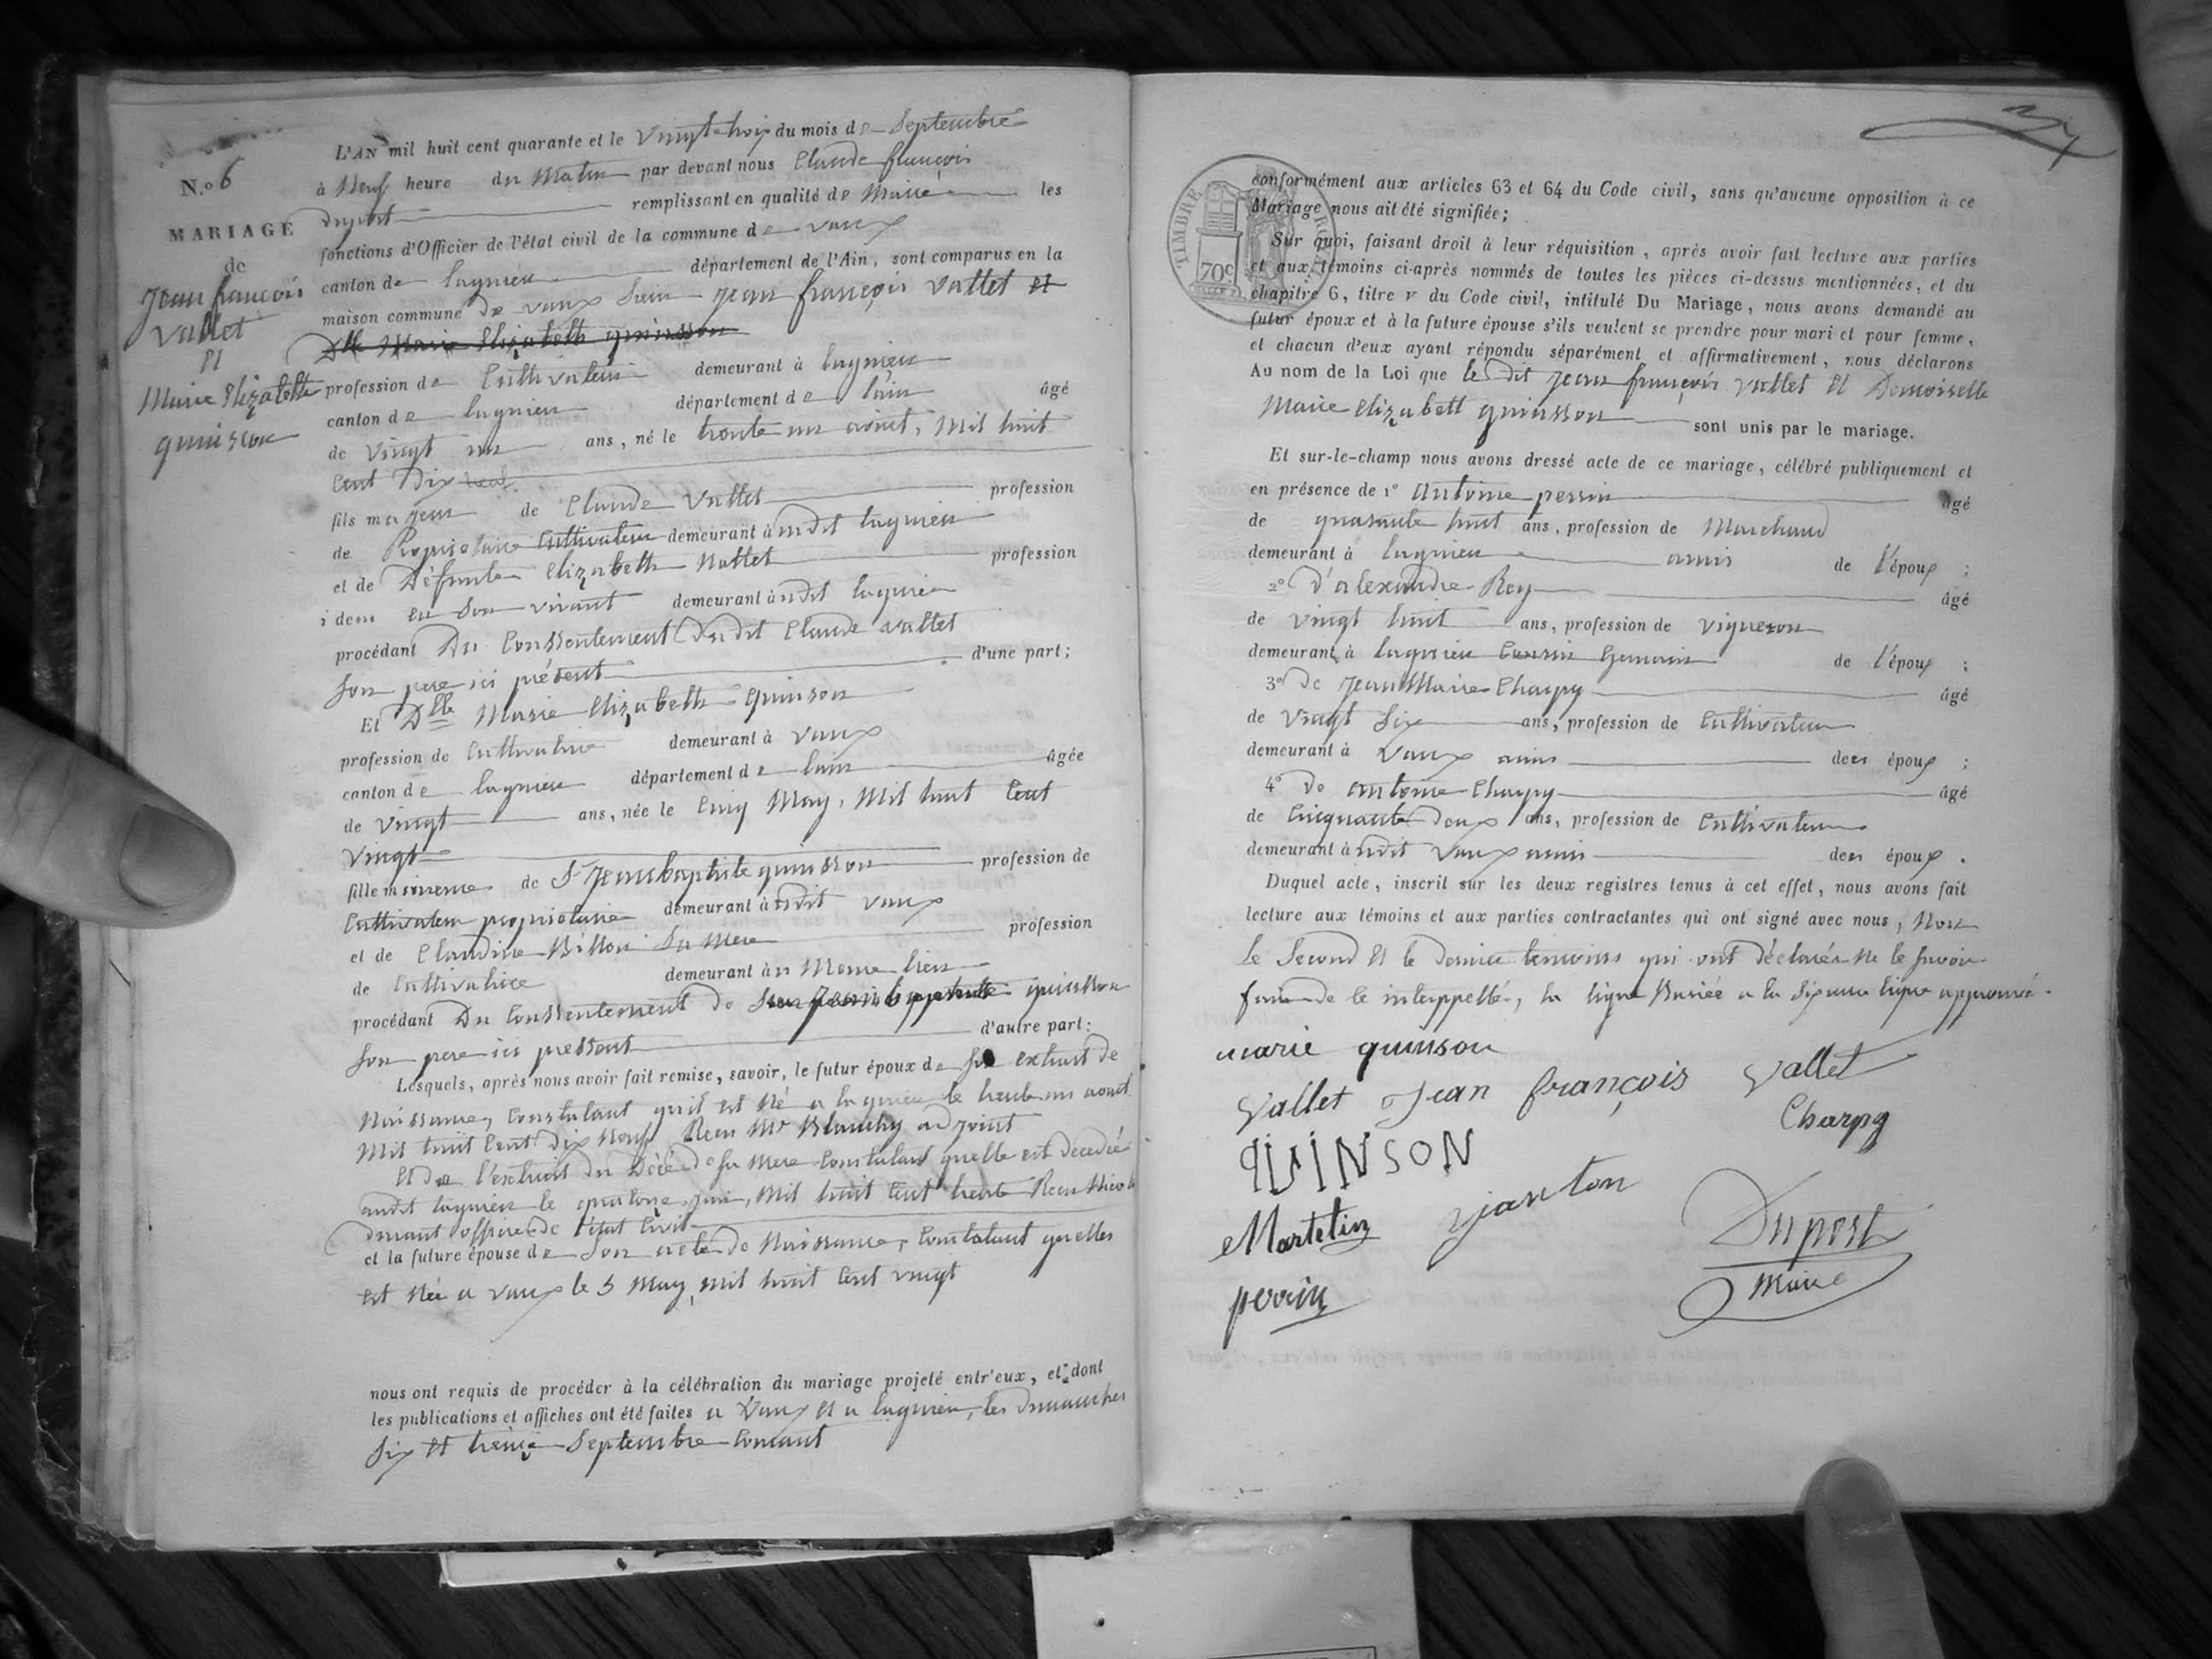 N.º 6
MARIAGE
de
Jean françois
Vallet
et
Marie Elizabeth
quinson
L'AN mil huit cent quarante et le Vingt trois du mois de Septembre
à Neuf heure du Matin par devant nous Claude françois
Duport remplissant en qualité de Maire les
fonctions d'Officier de l'état civil de la commune de vaux
canton de lagnieu département de l'Ain, sont comparus en la
maison commune de vaux Jean françois Vallet et
Dlle Marie Elizabeth quinson
profession de Cultivateur demeurant à lagnieu
canton de lagnieu département de lain âgé
de Vingt un ans, né le trente un aout, Mil huit
Cent Dix neuf
fils majeur de Claude Vallet profession
de Propriétaire Cultivateur demeurant à udit lagnieu
et de Défunte Elizabeth Nallet profession
idem en Son vivant demeurant à udit lagnieu
procédant Du Conssentement Dudit Claude vallet
Son pere ici présent d'une part;
Et Dlle Marie Elizabeth Quinson
profession de Cultivatrice demeurant à vaux
canton de lagnieu département de lain âgée
de Vingt ans, née le Cinq May, Mil huit Cent
Vingt
fille mineure de Sr Jean baptiste quinsson profession de
Cultivateur propriétaire demeurant à udit vaux
et de Claudine Billon Sa Mere profession
de Cultivatrice demeurant à u Meme lieu
procédant Du Conssentement de Jean baptiste quinsson
Son pere ici pressent d'autre part:
Lesquels, après nous avoir fait remise, savoir, le futur époux de Son extrait de
Naissance, Constatant quil est Né a lagnieu le trente un aout
Mil huit Cent Dix Neuf Recu Mr Blanchy adjoint
Et De l'extrait du Décé de Sa Mere Constatant quelle est Decedée
audit lagnieu le quatorze juin, Mil huit Cent trente Recu
officier de l'état Civil
et la future épouse de Son acte de Naissance, Constatant quelles
est Née a vaux le 5 May, mil huit Cent vingt
nous ont requis de procéder à la célébration du mariage projeté entr'eux, et dont
les publications et affiches ont été faites a Vaux et a lagnieu, les Dimanches
Six et treize Septembre Courant
conformément aux articles 63 et 64 du Code civil, sans qu'aucune opposition à ce
Mariage nous ait été signifiée;
TIMBRE ROYAL
70c
Sur quoi, faisant droit à leur réquisition, après avoir fait lecture aux parties
et aux témoins ci-après nommés de toutes les pièces ci-dessus mentionnées, et du
chapitre 6, titre v du Code civil, intitulé Du Mariage, nous avons demandé au
futur époux et à la future épouse s'ils veulent se prendre pour mari et pour femme,
et chacun d'eux ayant répondu séparément et affirmativement, nous déclarons
Au nom de la Loi que le dit Jean françois vallet et Demoiselle
Marie Elizabett quinsson sont unis par le mariage.
Et sur-le-champ nous avons dressé acte de ce mariage, célébré publiquement et
en présence de 1º Antoine perrin âgé
de quarante huit ans, profession de Marchand
demeurant à lagnieu amis de l'époux ;
2º d'alexandre Rey âgé
de Vingt huit ans, profession de vigneron
demeurant à lagnieu Cousin Germain de l'époux ;
3º de Jean Marie Charpy âgé
de Vingt Six ans, profession de Cultivateur
demeurant à Vaux amis des époux ;
4º De antoine Charpy âgé
de Cinquante Deux ans, profession de Cultivateur
demeurant à udit Vaux amis des époux .
Duquel acte, inscrit sur les deux registres tenus à cet effet, nous avons fait
lecture aux témoins et aux parties contractantes qui ont signé avec nous, Non
le Second et le Dernier temoins qui ont déclarés ne le Savoir
faire de le interppellé, la ligne Barrée a la Sixieme ligne approuvée.
marie quinson
Vallet Jean françois Vallet
Charpy
QUINSON
Martelin Janton
Duport
Maire
perrin